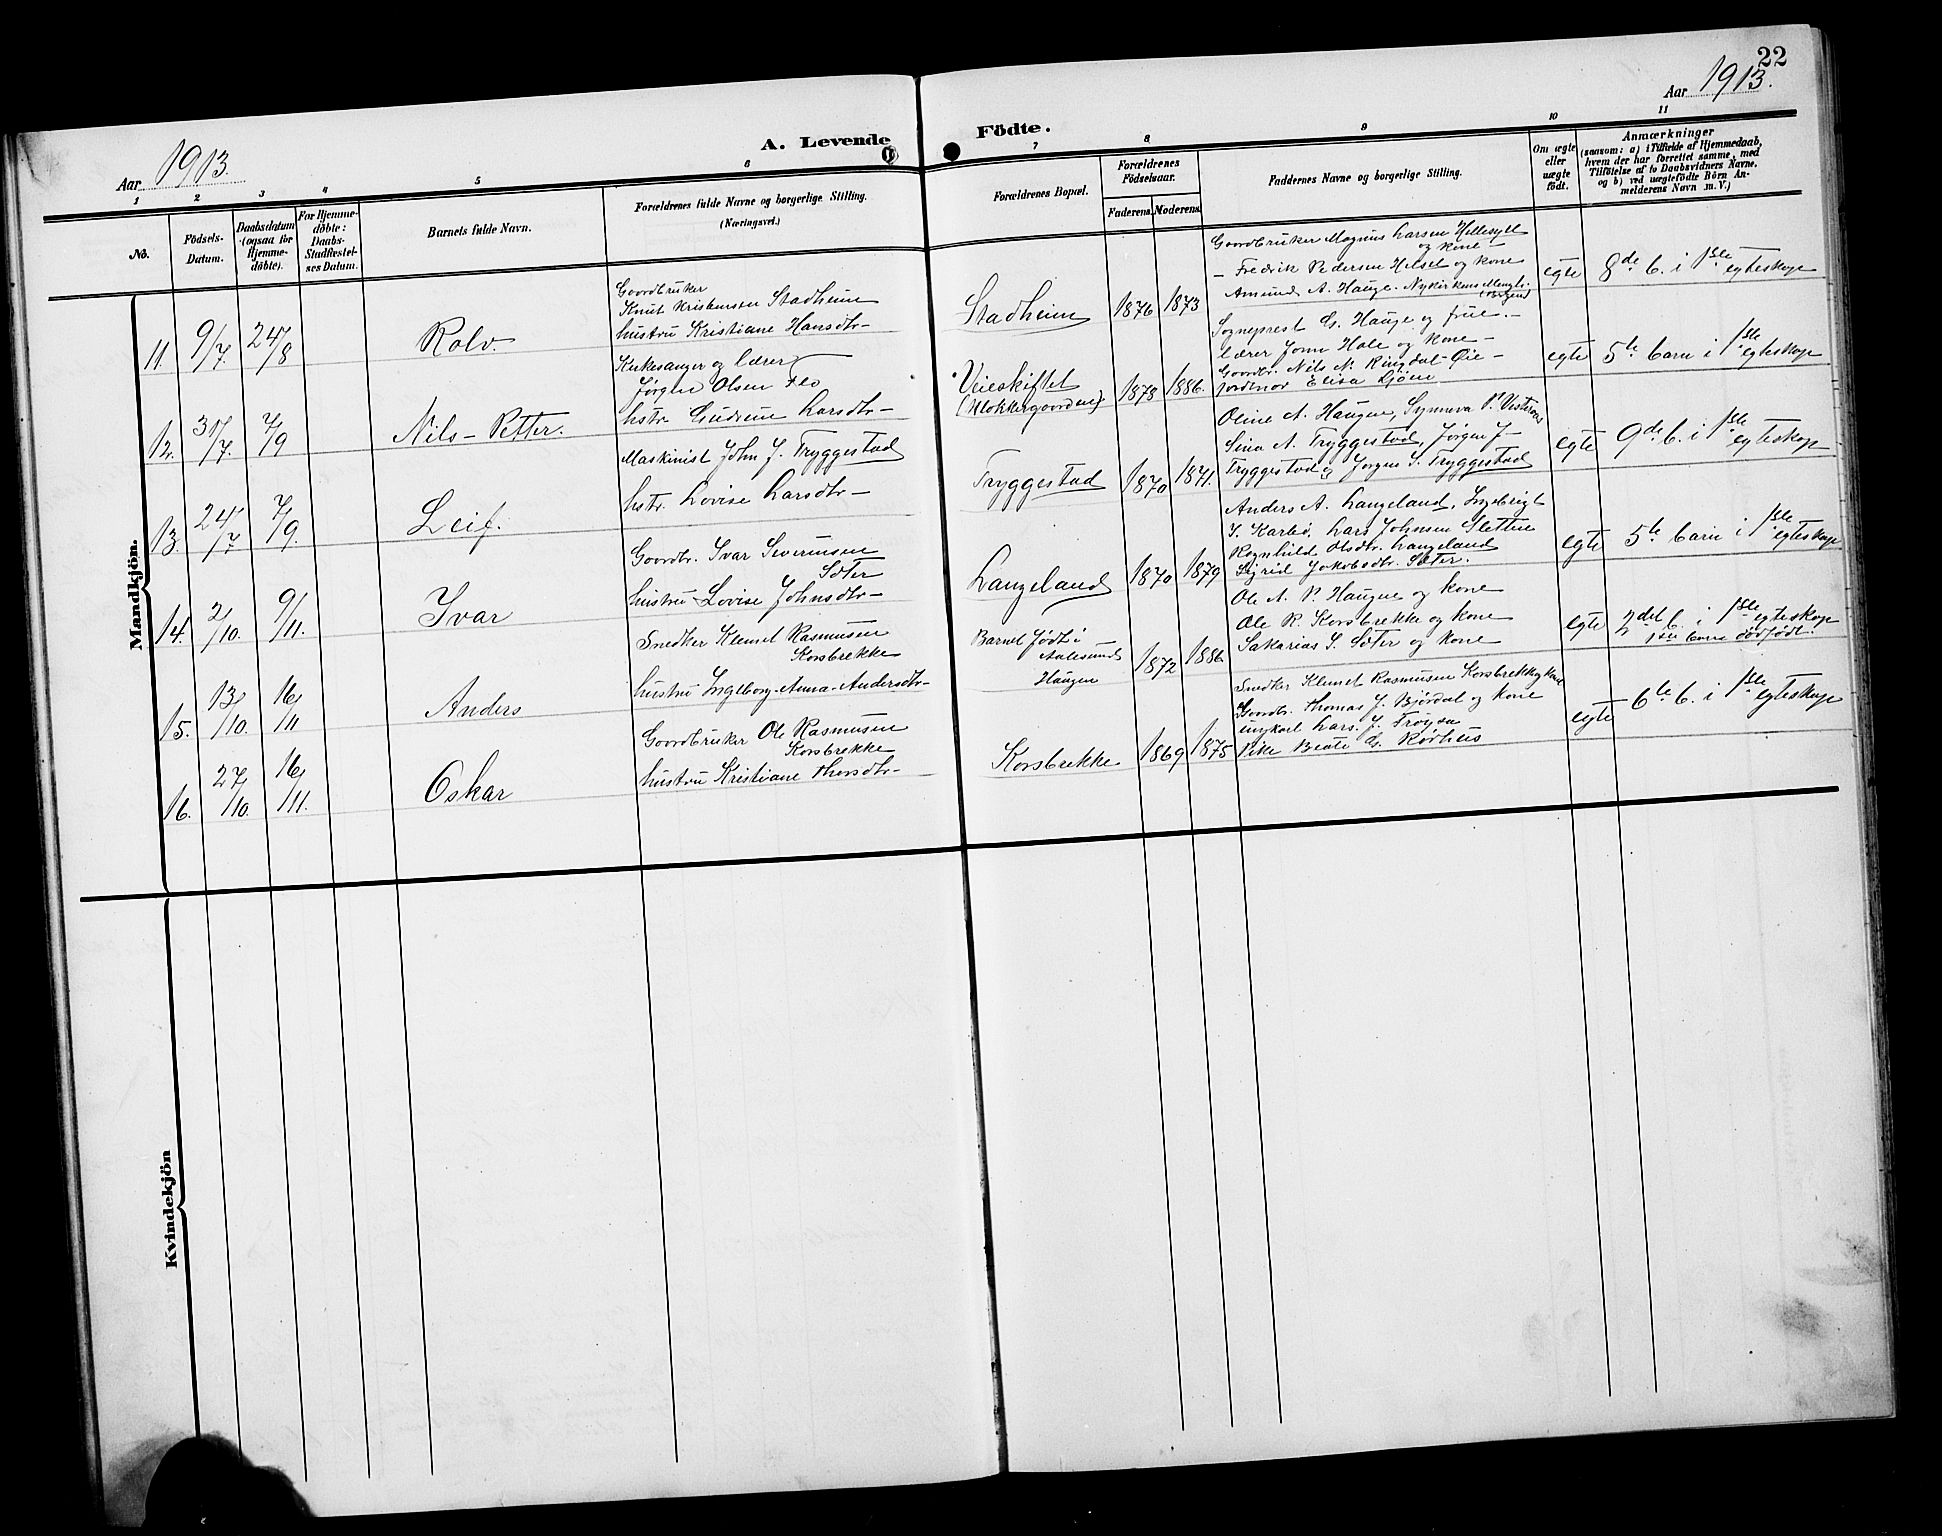 22
Aar 1913.
Aar 1913.
A. Levende Födte.
1 2 3 4 5 6 7 8 9 10 11
No.
Födsels-
Datum.
Daabsdatum
(ogsaa for
Hjemme-
döbte).
For Hjemme-
döbte:
Daabs-
Stadfæstel-
ses Datum.
Barnets fulde Navn.
Forældrenes fulde Navne og borgerlige Stilling.
(Næringsvei.)
Forældrenes Bopæl.
Forældrenes
Födselsaar.
Faderens. Moderens.
Faddernes Navne og borgerlige Stilling.
Om ægte
eller
uægte
födt.
Anmærkninger
(saasom: a) i Tilfælde af Hjemmedaab,
hvem der har forrettet samme, med
Tilföielse af to Daabsvidners Navne,
og b) ved uægtefödte Börn An-
melderens Navn m. V.)
Mandkjön.
11. 9/7 24/8 Rolv.
Gaardbruker
Knut Kristensen Stadheim
hustru Kristiane Hansdtr-
Stadheim 1876 1873
Gaardbruker Magnus Larsen Hellesylt
og kone -
- Fredrik Pedersen Helset og kone
Amund A. Hauge. Nykirkens Menigh.
(Bergen)
egte 8de b. i 1ste egteskap
12. 30/7. 7/9 Nils-Petter.
Kirkesanger og lærer
Jørgen Olsen Flo
hstr. Gudrun Larsdtr-
Veieskiftet
(Klokkergaarden) 1878 1886.
Sogneprest G. Hauge og frue.-
Lærer Jonn Hole og kone -
Gaardbr. Nils N. Ringdal-Øie -
Jordmor Elisa Ljøen
egte 5te barn i 1ste egteskap
13. 24/7 7/9. Leif.
Maskinist John J. Tryggestad
hstr. Lovise Larsdtr-
Tryggestad 1870 1871.
Oline A. Haugen, Synneva P. Vesteraas
Sina A. Tryggestad, Jørgen J-
Tryggestad og Jørgen S. Tryggestad
egte 9de b. i 1ste egteskap
14. 2/10. 9/11. Ivar
Gaardbr. Ivar Severinsen
Sæter
hustru Lovise Johnsdtr-
Langeland 1870 1879
Anders A. Langeland, Ingebrigt
I. Karlsø, Lars Johnsen Sletten
Ragnhild Olsdtr. Langeland
Sigrid Jakobsdtr. Sæter.
egte 5te barn i 1ste egteskap
15. 13/10. 16/11 Anders
Snedker Klemet Rasmusen
Korsbrekke
hustru Ingeborg-Anna-Andersdtr-
Barnet født i
Aalesund
Haugen 1872 1886
Ole A. P. Haugen og kone
Ole R. Korsbrekke og kone
Sakarias S. Sæter og kone
egte 2det b. i 1ste egteskap
1ste barn dødfødt.
16. 27/10. 16/11. Oskar
Gaardbruker Ole Rasmusen
Korsbrekke
hustru Kristiane Thorsdtr-
Korsbrekke 1869 1875
Snedker Klemet Rasmusen Korsbrekke og kone
Gaardbr. Thomas J. Bjørdal og kone
ungkarl Lars. J. Frøysa
Pike Beate G. Rørhus
egte 6te b. i 1ste egteskap
Kvindekjön